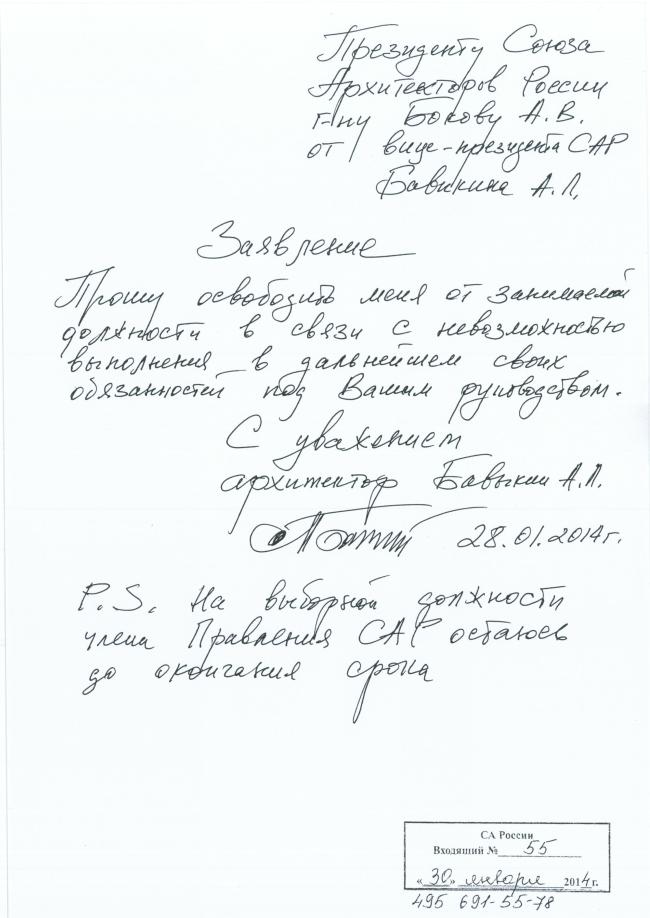 Президенту Союза
Архитекторов России
г-ну Бокову А.В.
от вице-президента САР
Бавыкина А.Л.
Заявление
Прошу освободить меня от занимаемой
должности в связи с невозможностью
выполнения в дальнейшем своих
обязанностей под Вашим руководством.
С уважением
архитектор Бавыкин А.Л.
28.01.2014г.
P.S. На выборной должности
члена Правления САР остаюсь
до окончания срока
СА России
Входящий № 55
«30» января 2014 г.
495 691-55-78